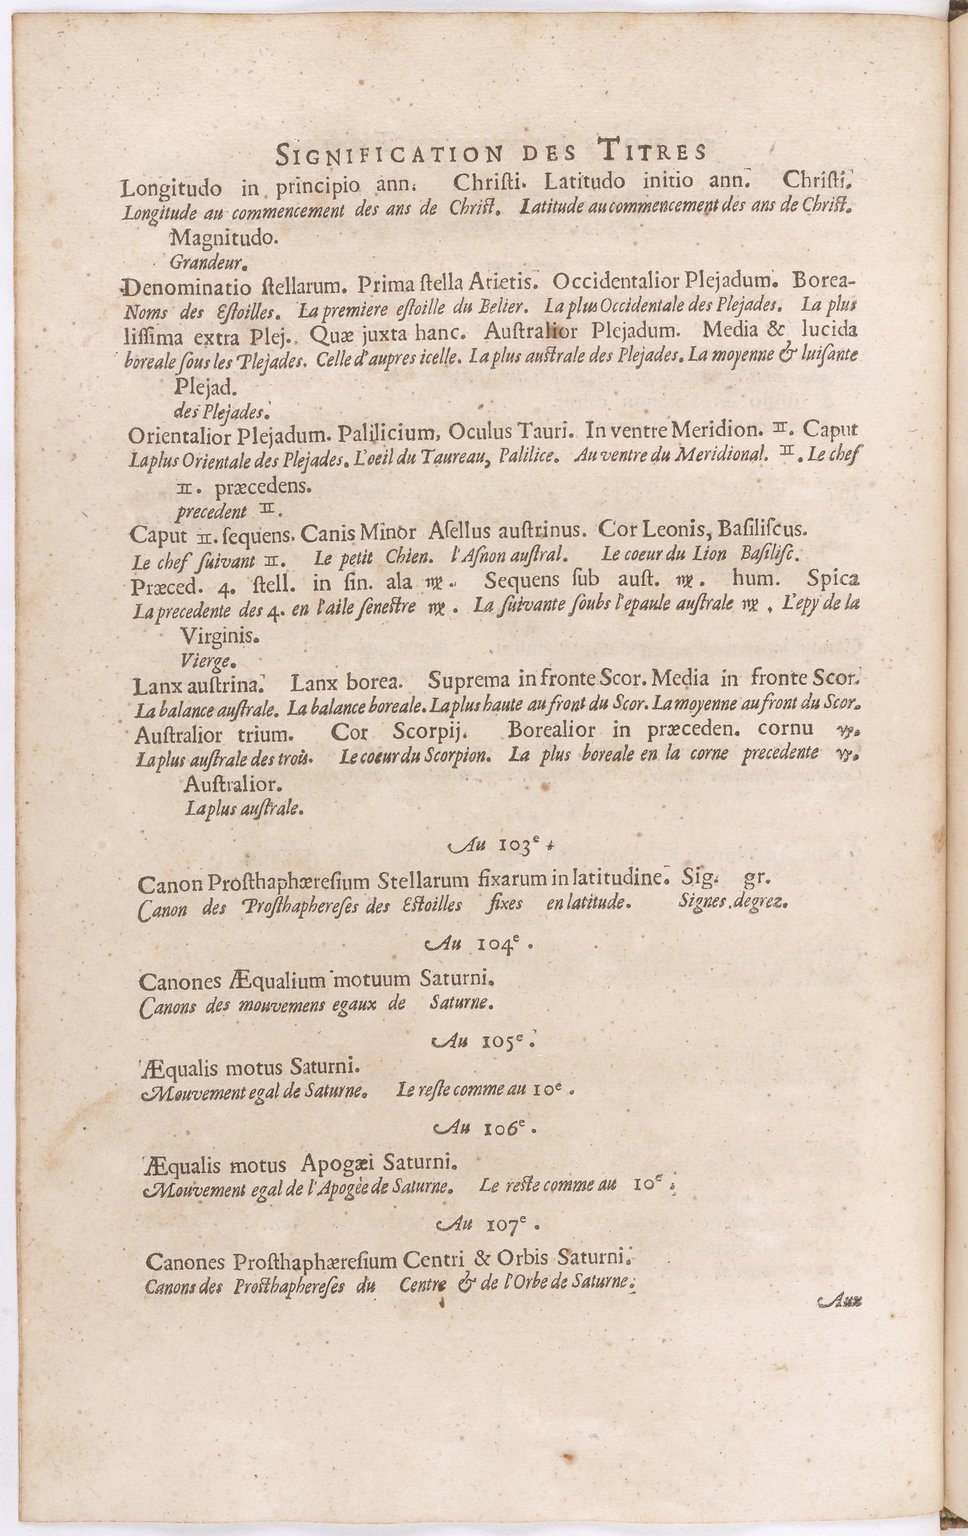 SIGNIFICATION DES TITRES
Longitudo in principio ann. Chriſti. Latitudo initio ann. Chriſti.
Longitude au commencement des ans de Chriſt. Latitude au commencement des ans de Chriſt.
Magnitudo.
Grandeur.
Denominatio ſtellarum. Prima ſtella Arietis. Occidentalior Plejadum. Borea-
Noms des Eſtoilles. La premiere eſtoille du Belier. La plus Occidentale des Plejades. La plus
liſſima extra Plej. Quæ juxta hanc. Auſtralior Plejadum. Media & lucida
boreale ſous les Plejades. Celle d'aupres icelle. La plus auſtrale des Plejades. La moyenne & luiſante
Plejad.
des Plejades.
Orientalior Plejadum. Palilicium, Oculus Tauri. In ventre Meridion. ♊. Caput
La plus Orientale des Plejades. L'oeil du Taureau, Palilice. Au ventre du Meridional. ♊. Le chef
♊. præcedens.
precedent ♊.
Caput ♊. ſequens. Canis Minor Aſellus auſtrinus. Cor Leonis, Baſiliſcus.
Le chef ſuivant ♊. Le petit Chien. l'Aſnon auſtral. Le coeur du Lion Baſiliſc.
Præced. 4. ſtell. in ſin. ala ♍. Sequens ſub auſt. ♍. hum. Spica
La precedente des 4. en l'aile ſeneſtre ♍. La ſuivante ſoubs l'epaule auſtrale ♍. L'epy de la
Virginis.
Vierge.
Lanx auſtrina. Lanx borea. Suprema in fronte Scor. Media in fronte Scor.
La balance auſtrale. La balance boreale. La plus haute au front du Scor. La moyenne au front du Scor.
Auſtralior trium. Cor Scorpij. Borealior in præceden. cornu ♑.
La plus auſtrale des trois. Le coeur du Scorpion. La plus boreale en la corne precedente ♑.
Auſtralior.
La plus auſtrale.
Au 103e.
Canon Proſthaphæreſium Stellarum fixarum in latitudine. Sig. gr.
Canon des Proſthaphereſes des Eſtoilles fixes en latitude. Signes. degrez.
Au 104e.
Canones Æqualium motuum Saturni.
Canons des mouvemens egaux de Saturne.
Au 105e.
Æqualis motus Saturni.
Mouvement egal de Saturne. Le reſte comme au 10e.
Au 106e.
Æqualis motus Apogæi Saturni.
Mouvement egal de l'Apogée de Saturne. Le reſte comme au 10e.
Au 107e.
Canones Proſthaphæreſium Centri & Orbis Saturni.
Canons des Proſthaphereſes du Centre & de l'Orbe de Saturne.
Aux